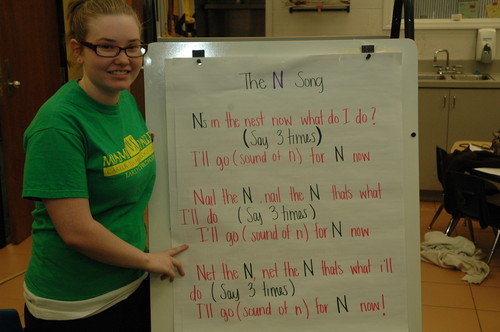 The N Song
Ns in the nest now what do I do?
(Say 3 times)
I'll go (sound of n) for N now
Nail the N, nail the N thats what
I'll do (Say 3 times)
I'll go (sound of n) for N now
Net the N, net the N thats what i'll
do (Say 3 times)
I'll go (sound of n) for N now!
MIAMI